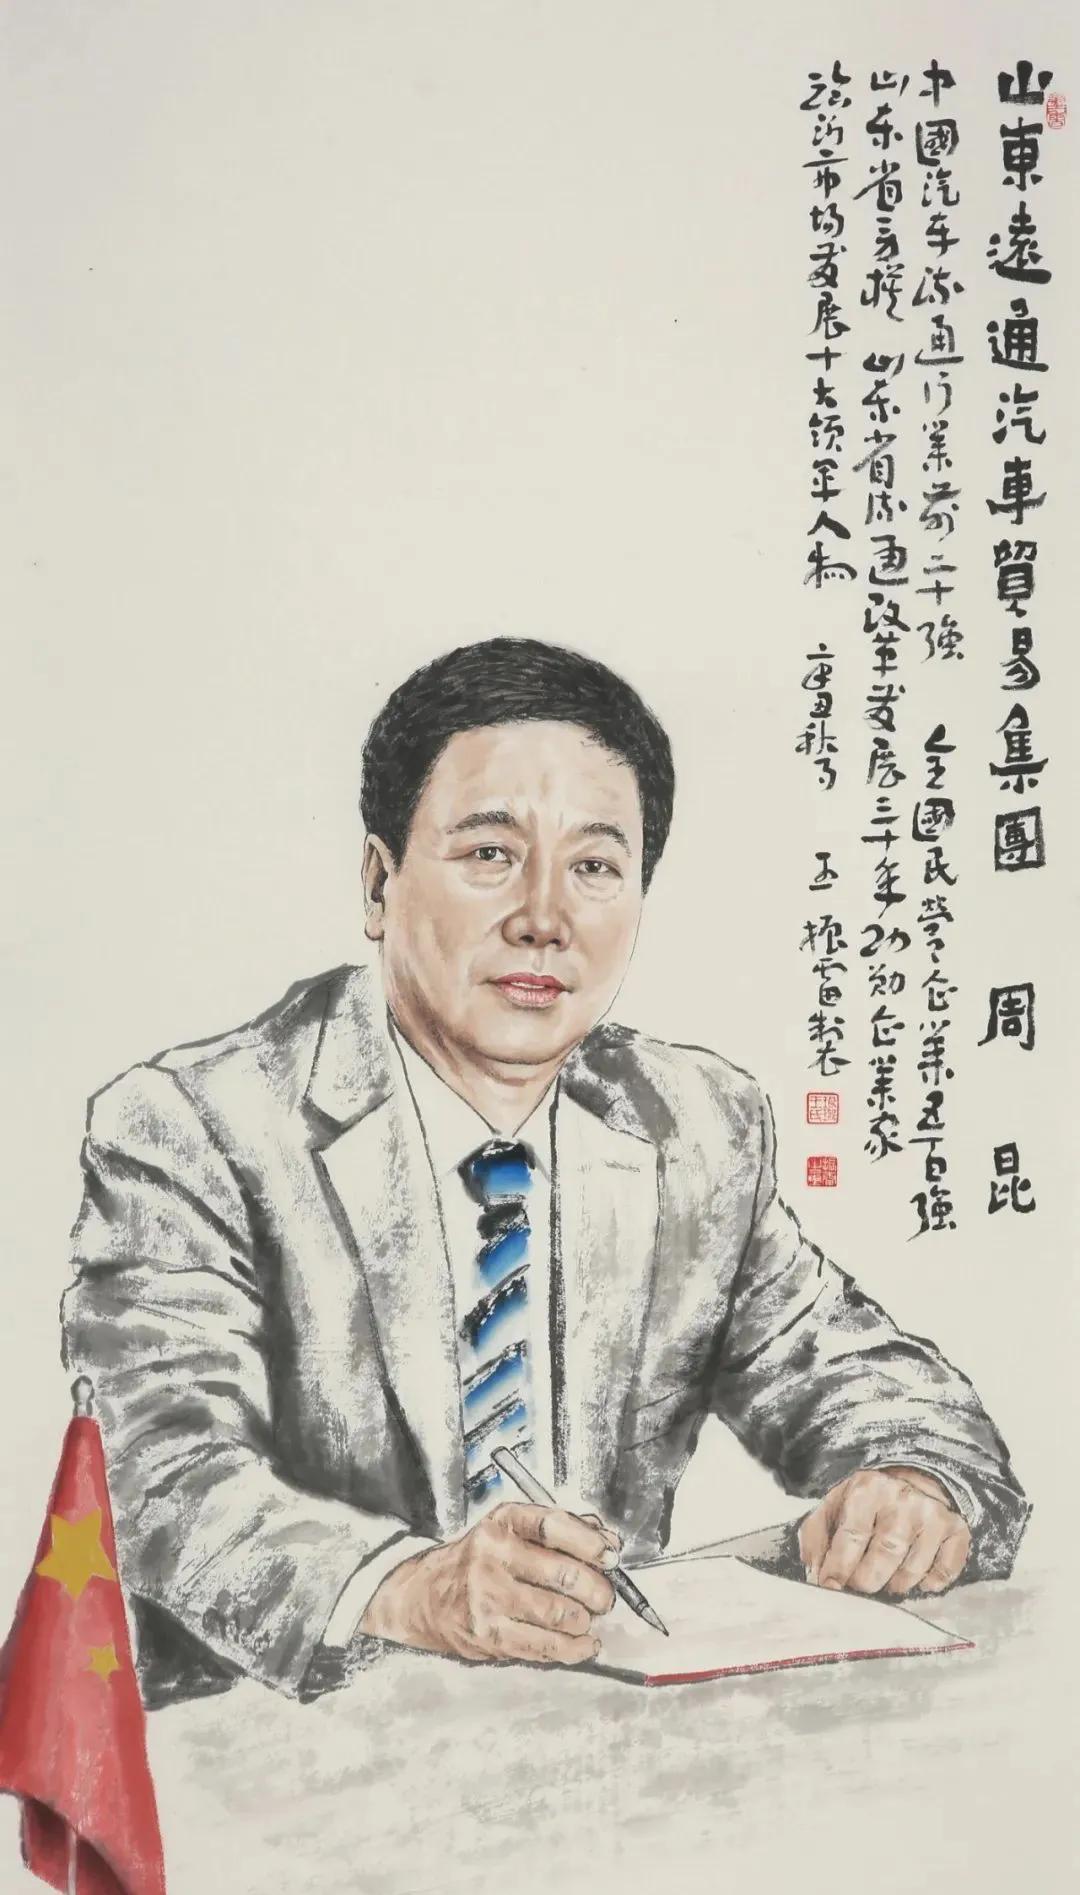 山東遠通汽車貿易集團 周昆
中國汽车流通行業前二十強 全國民營企業五百強
山东省劳模 山东省流通改革发展三十年功勋企業家
临沂市场发展十大领军人物 辛丑秋月 王振雷制